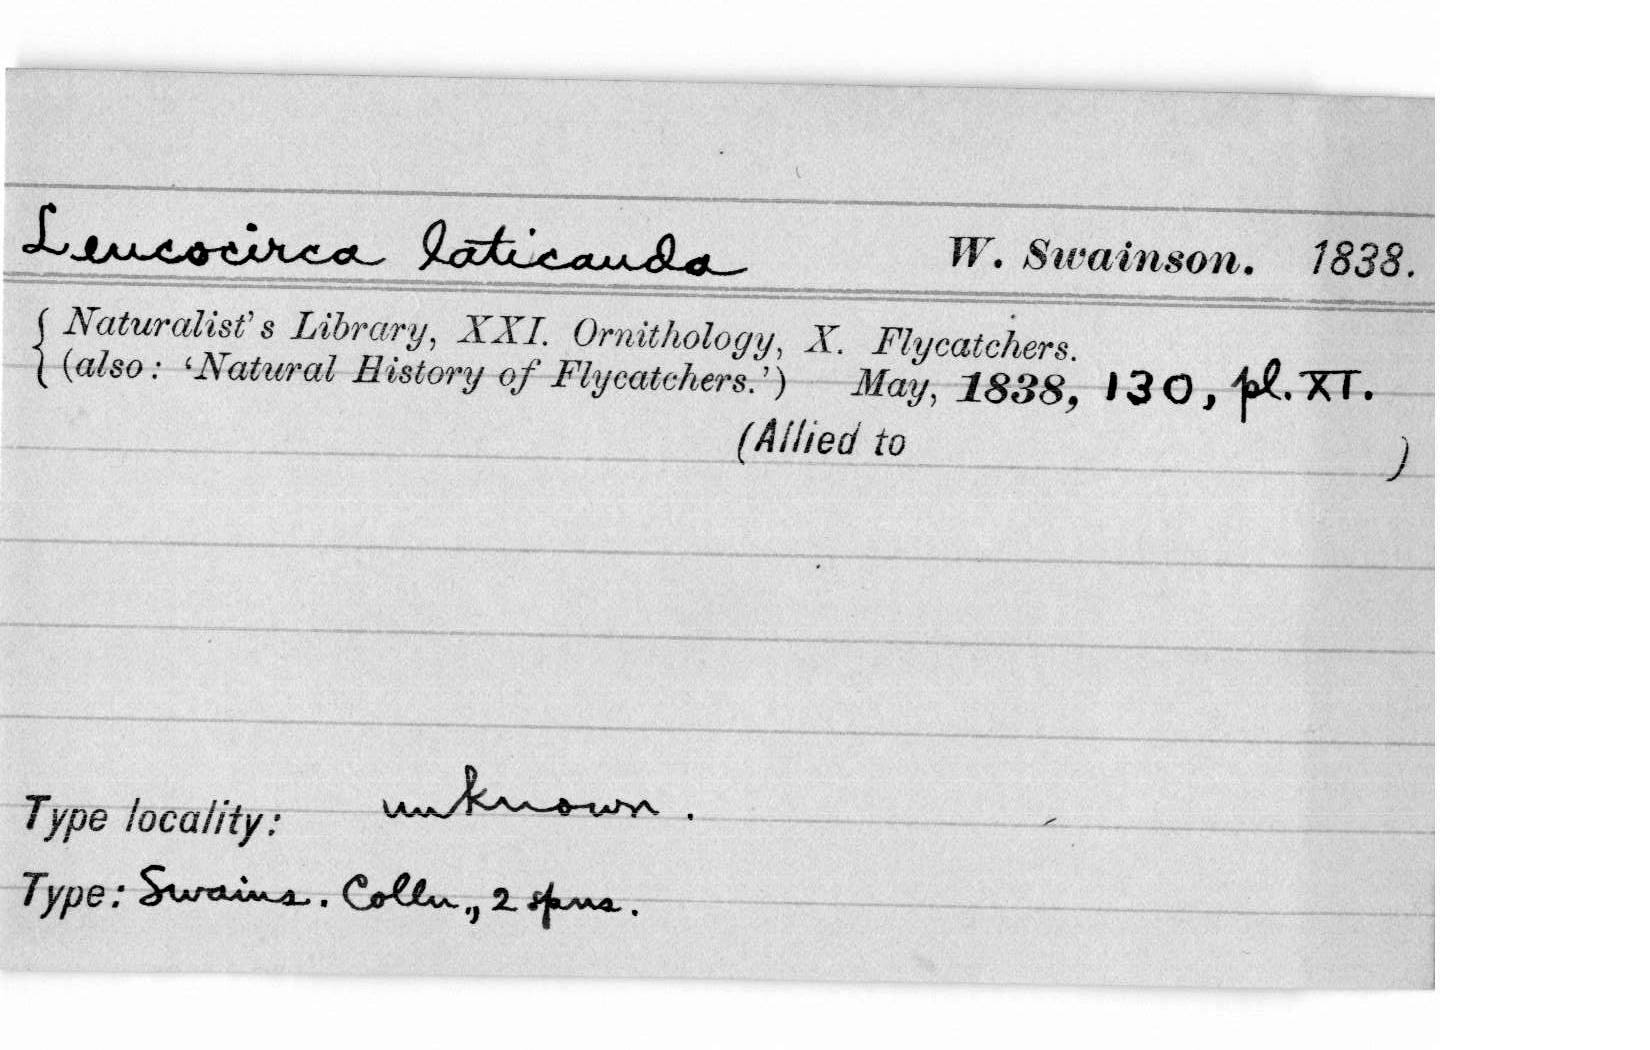 Leucocirca laticauda W. Swainson. 1838.
{ Naturalist's Library, XXI. Ornithology, X. Flycatchers.
(also: 'Natural History of Flycatchers.') May, 1838, 130, pl. XI.
(Allied to )
Type locality: unknown.
Type: Swains. Colln., 2 spns.